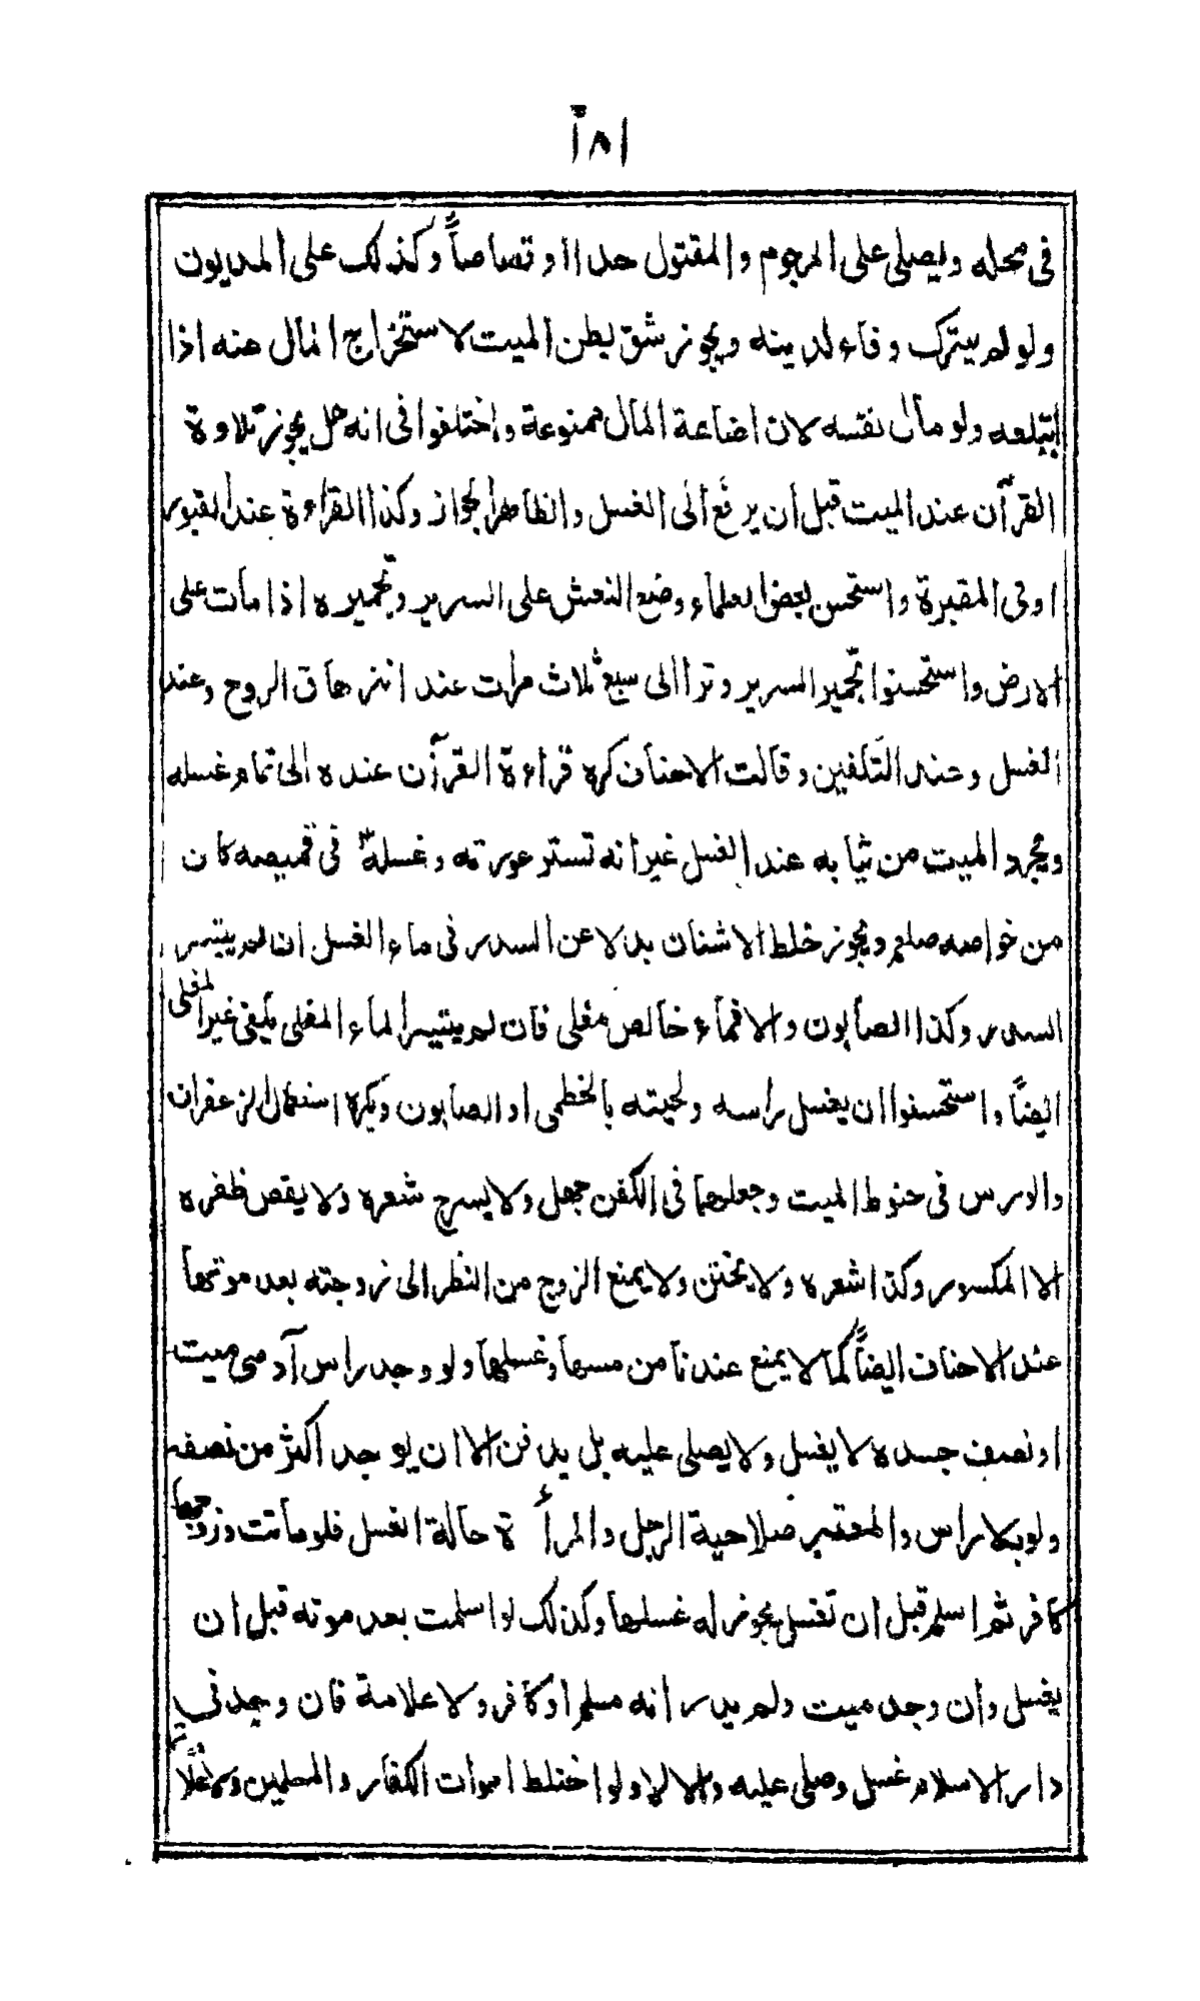 ١٨١
في محله ويصلى على المرجوم والمقتول حدا او قصاصاً وكذلك على المديون
ولو لم يترك وفاء لدينه ويجوز شق بطن الميت لاستخراج المال منه اذا
ابتلعه ولو مال نفسه لان اضاعة المال ممنوعة واختلفوا في انه هل يجوز تلاوة
القرآن عند الميت قبل ان يرفع الى الغسل والظاهر الجواز وكذا القراءة عند القبور
او في المقبرة واستحسن بعض العلماء وضع النعش على السرير وتجميره اذا مات على
الارض واستحسنوا تجمير السرير وترا الى سبع ثلاث مرات عند انزهاق الروح وعند
الغسل وعند التكفين وقالت الاحناف كره قراءة القرآن عنده الى تمام غسله
ويجرد الميت من ثيابه عند الغسل غير انه تستر عورته وغسله في قميصه كان
من خواصه صلعم ويجوز خلط الاشنان بدلا عن السدر في ماء الغسل ان لم يتيسر
السدر وكذا الصابون والا فماء خالص مغلى فان لم يتيسر الماء المغلى يكفى غير المغلى
ايضاً واستحسنوا ان يغسل راسه ولحيته بالخطمى او الصابون ويكره استعمال الزعفران
والورس في حنوط الميت وجعلهما في الكفن جهل ولا يسرح شعره ولا يقص ظفره
الا المكسور وكذا شعره ولا يختن ولا يمنع الزوج من النظر الى زوجته بعد موتها
عند الاحناف ايضاً كما لا يمنع عندنا من مسها وغسلها ولو وجد راس آدمى ميت
او نصف جسده لا يغسل ولا يصلى عليه بل يدفن الا ان يوجد اكثر من نصفه
ولو بلا راس والمعتبر صلاحية الرجل والمرأة حالة الغسل فلو ماتت وزوجها
كافر ثم اسلم قبل ان تغسل يجوز له غسلها وكذلك لو اسلمت بعد موته قبل ان
يغسل وان وجد ميت ولم يدر انه مسلم او كافر ولا علامة فان وجد في
دار الاسلام غسل وصلى عليه والا لا ولو اختلط اموات الكفار والمسلمين ولا